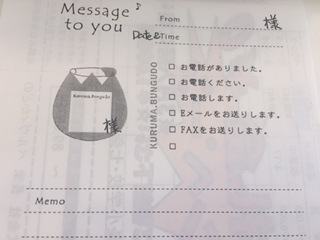 Message
to you
From 様
Date&Time
Kuruma.Bungudo
様
KURUMA.BUNGUDO
お電話がありました。
お電話ください。
お電話します。
Eメールをお送りします。
FAXをお送りします。
Memo